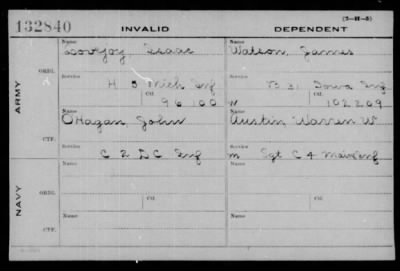 (3-H-5)
132840 INVALID DEPENDENT
Name Name
Lovejoy, Isaac Watson, James
ORIG. Service Service
H 5 Mich Inf B 31 Iowa Inf
Ctf. Ctf.
ARMY 96100 W 102209
Name Name
O'Hagan, John Austin, Warren W
CTF. Service Service
C 2 D C Inf m Sgt C 4 Maine Inf
Name Name
NAVY ORIG. Ctf. Ctf.
Name Name
CTF.